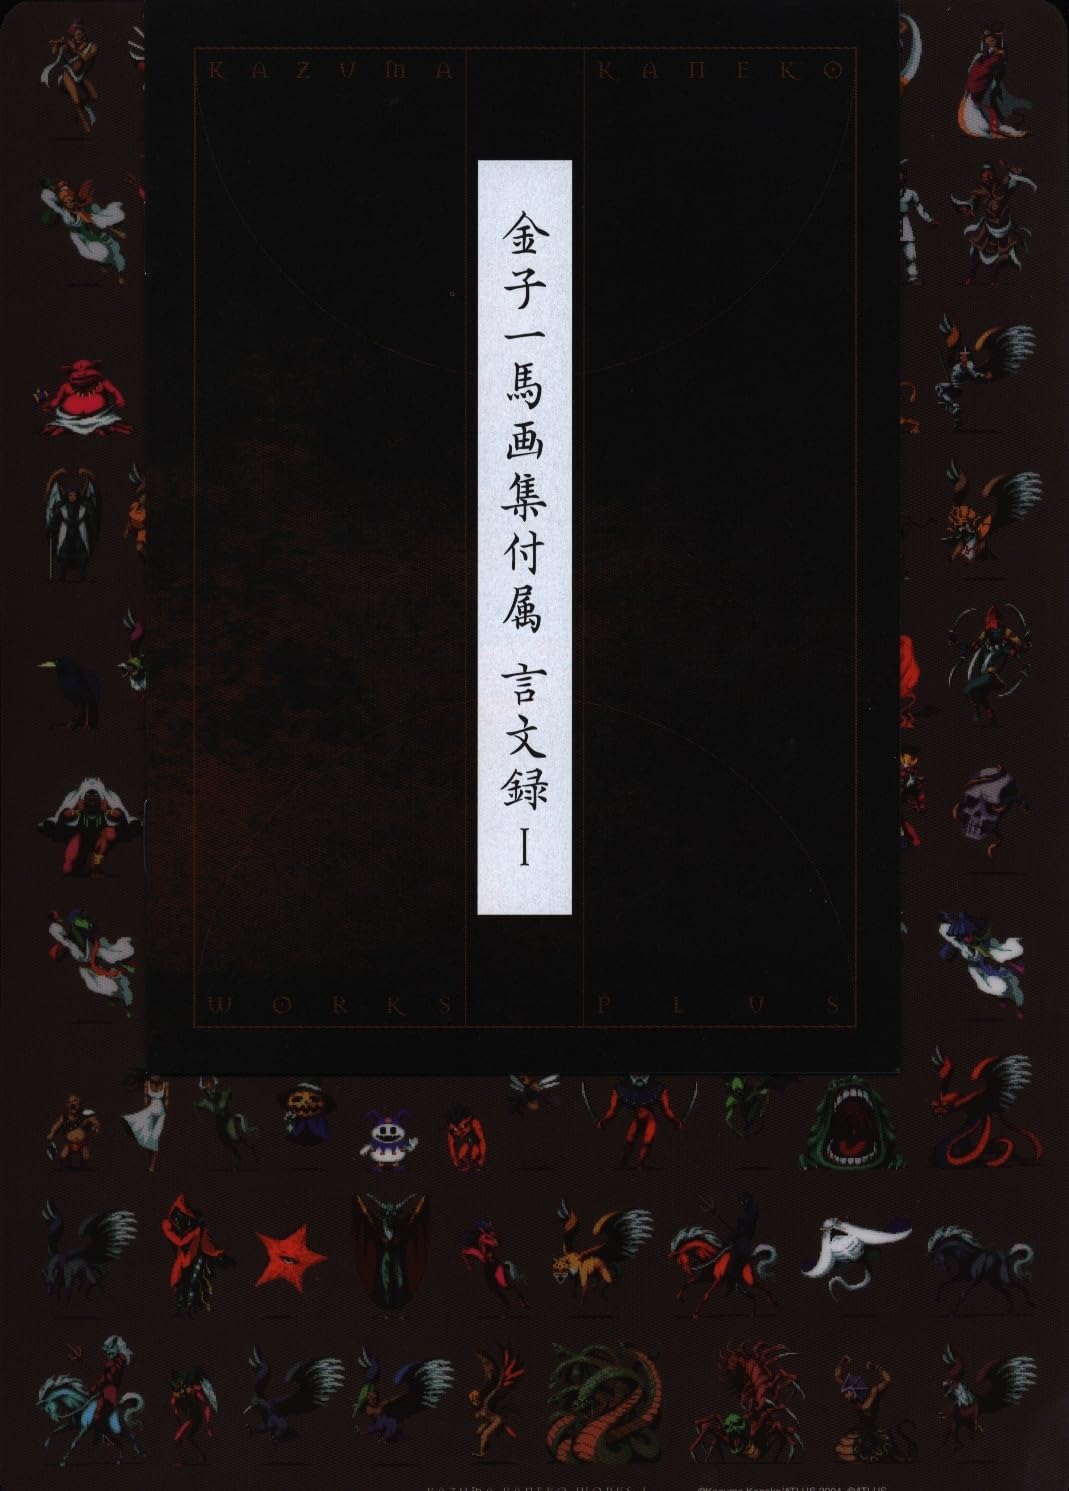 KAZUMA KANEKO
金子一馬画集付属 言文録 I
WORKS PLUS
KAZUMA KANEKO WORKS I
©Kazuma Kaneko/ATLUS 2004 ©ATLUS